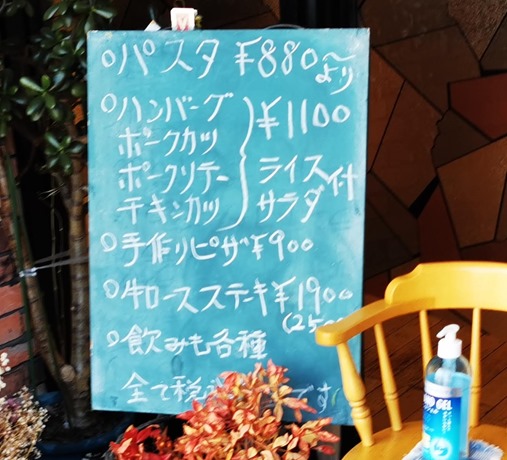 ○パスタ ¥880〜より
○ハンバーグ
ポークカツ
ポークソテー
チキンカツ
¥1100
ライス
サラダ付
○手作りピザ¥900
○牛ロースステーキ¥1900
○飲みもの各種
全て税
です
GEL